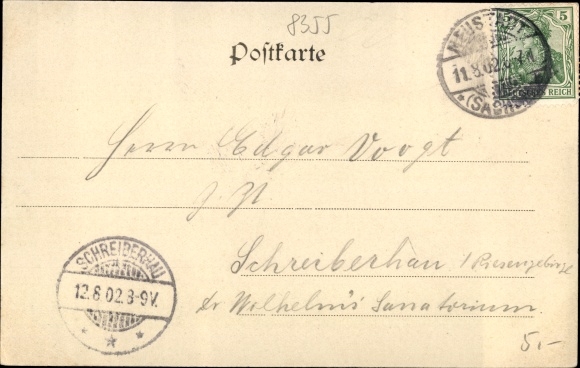 8355
Postkarte
NEUSTADT
11.8.02.
(SACHSEN)
5
REICH
Herrn Edgar Voogt
z. Zt.
Schreiberhau / Riesengebirge
Dr Wilhelm's Sanatorium.
SCHREIBERHAU
12.8.02.8-9V.
5.-